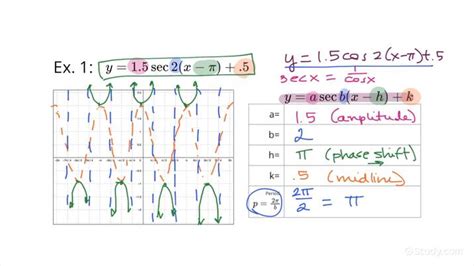 Ex. 1: y = 1.5 sec 2(x − π) + .5
y = 1.5 cos 2(x-π)+.5
sec x = 1/cosx
y = a sec b(x − h) + k
a= 1.5 (amplitude)
b= 2
h= π (phase shift)
k= .5 (midline)
Period
p = 2π/b 2π/2 = π
Study.com